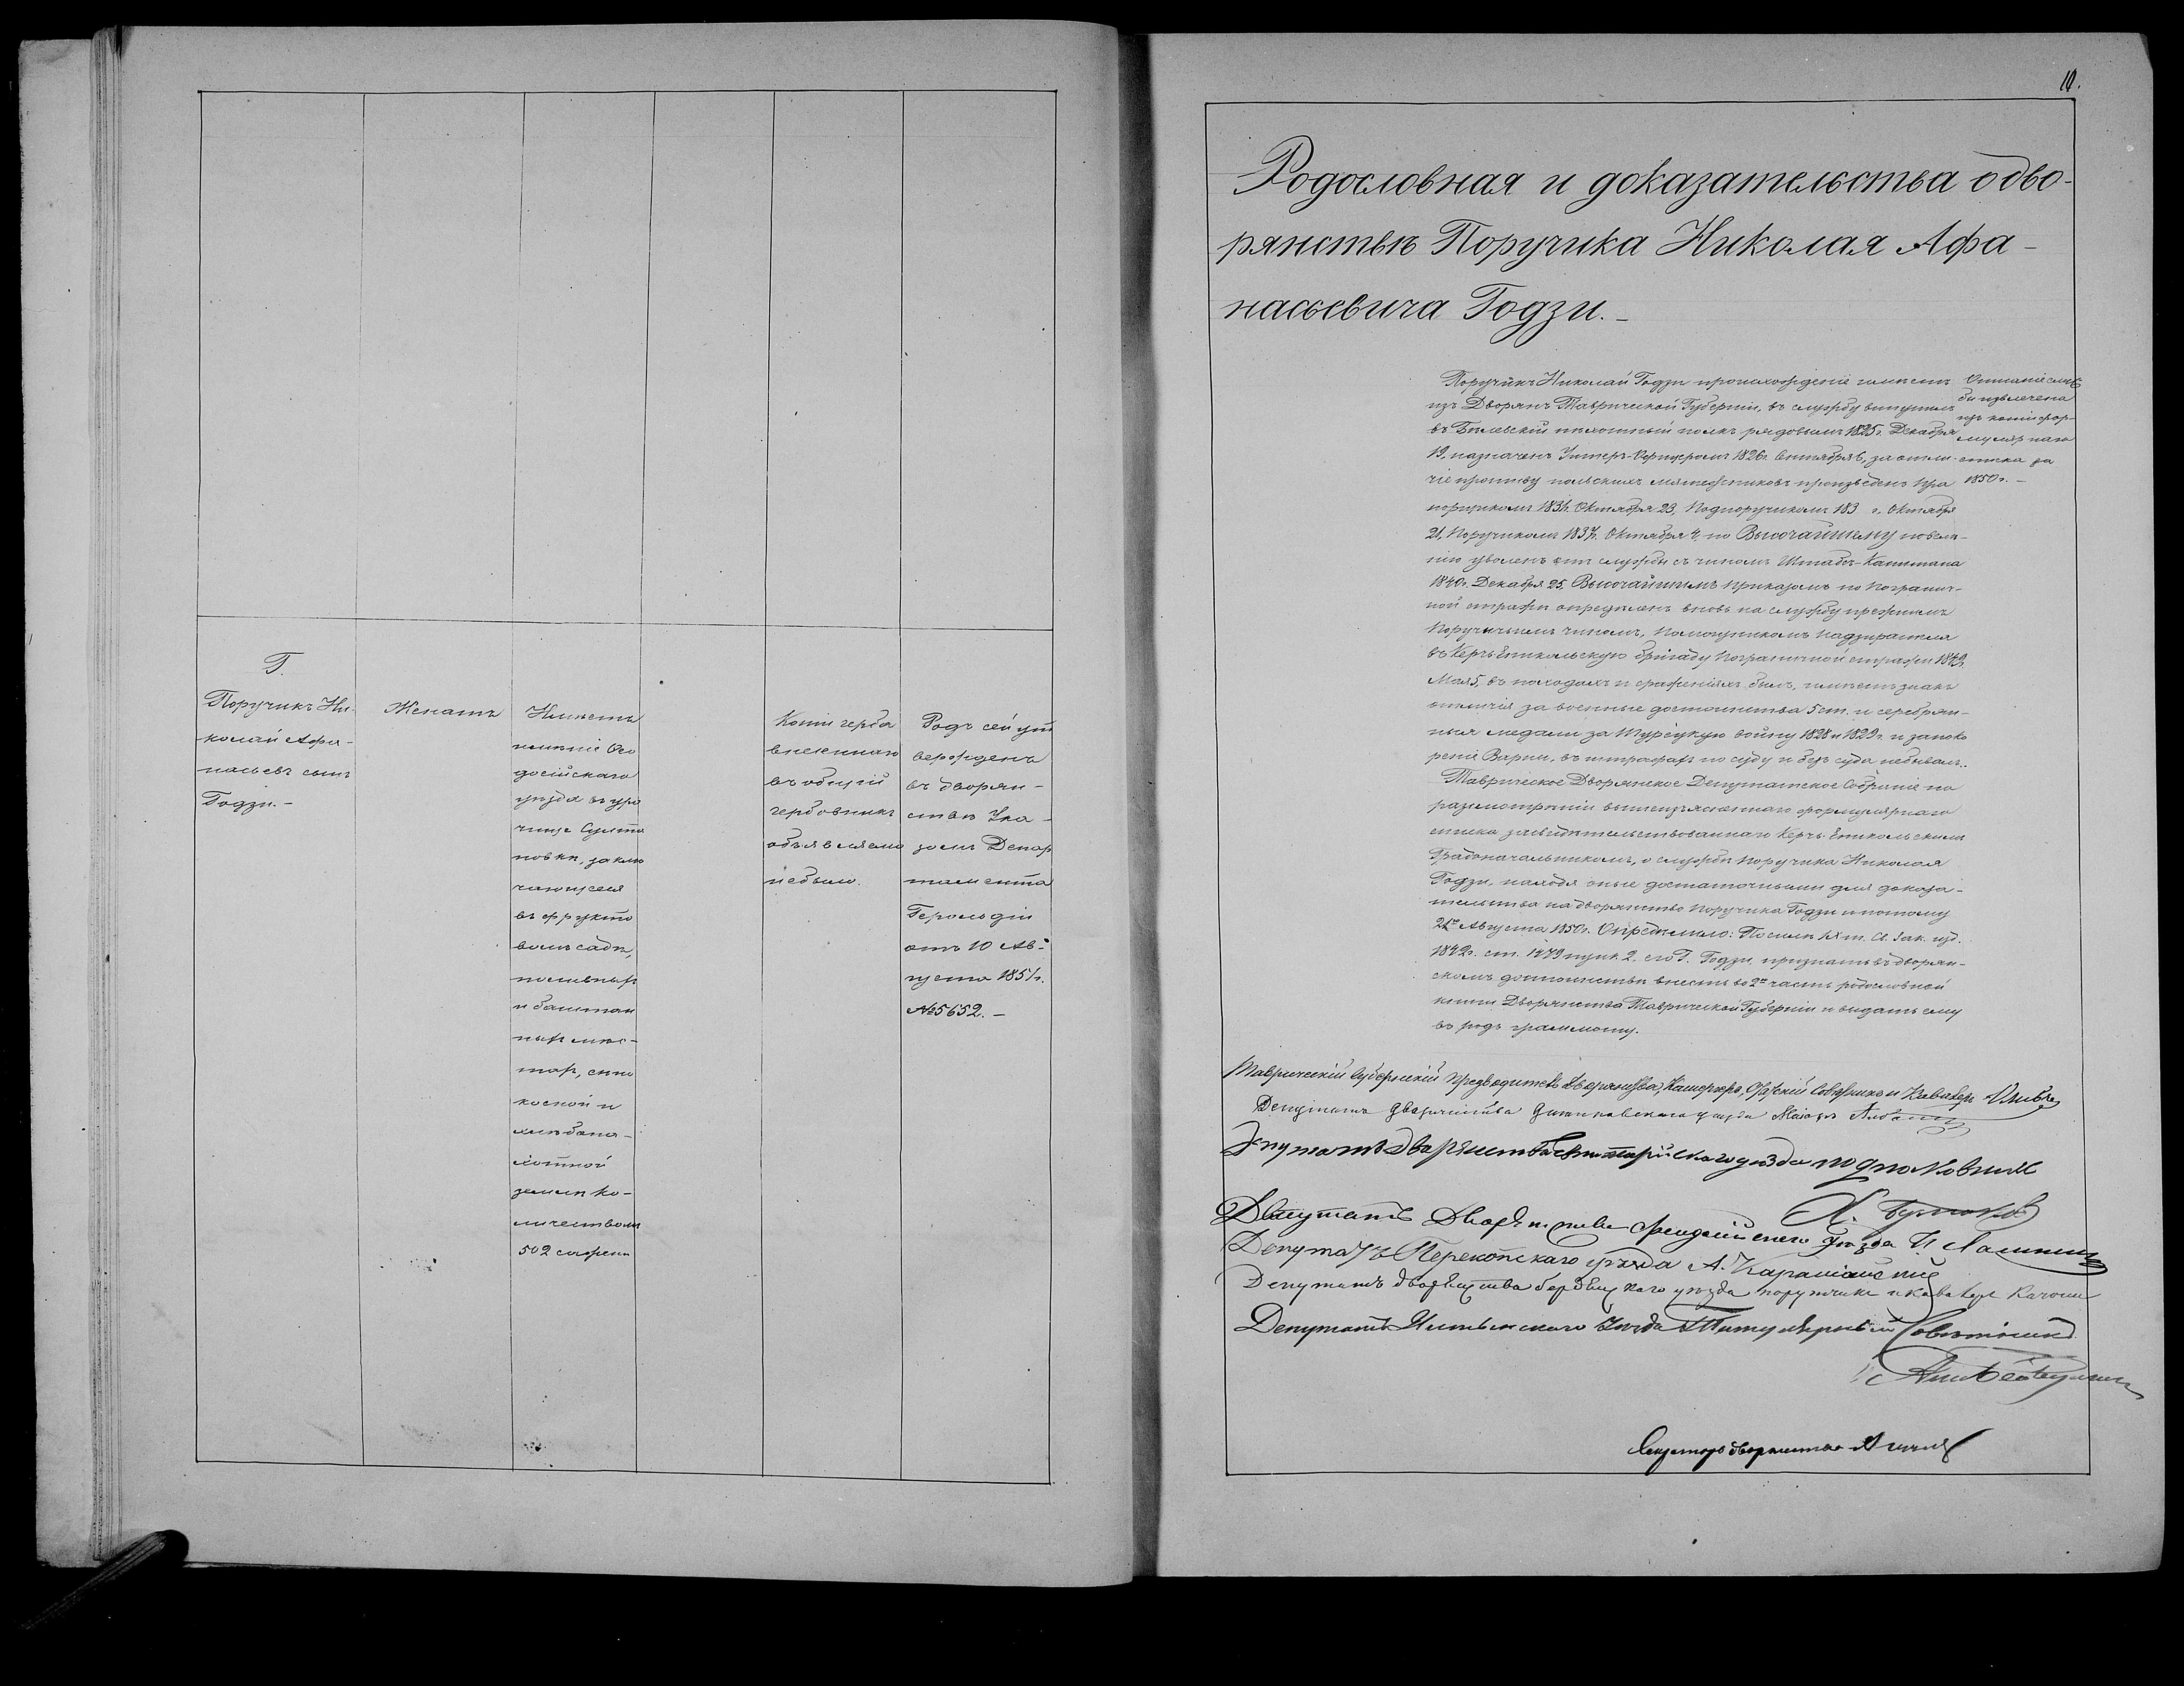 Г.
Поручикъ Ни-
колай Афа-
насьевъ сынъ
Годзи.-
Женатъ
Имѣетъ
имѣніе Ѳео
досійскаго
уѣзда въ уро
чищѣ Султа
новки, заклю
чающееся
въ фрукто
вомъ садѣ,
поливных
и баштан
ных мѣс-
тах, сѣно
косной и
хлѣбопа-
хотной
земли ко-
личествомъ
502 сажени
Копіи герба
внесеннаго
въ общій
гербовникъ
объявляемо
небыло.
Родъ сей ут
вержденъ
въ дворян-
ствѣ Ука-
зомъ Депар
тамента
Герольдіи
отъ 10 Ав-
густа 1851г.
№5652.-
10.
Родословная и доказательства о дво-
рянствѣ Поручика Николая Афа-
насьевича Годзи.-
Поручикъ Николай Годзи происхожденіе имѣетъ
изъ Дворянъ Таврической Губерніи, въ службу вступилъ
въ Бѣлевскій пѣхотный полкъ рядовымъ 1825г. Декабря
19, назначенъ Унтеръ-Офицеромъ 1826г. Сентября 6, за отли-
чіе противу польскихъ мятежниковъ произведенъ Пра
порщикомъ 1831г. Октября 23, Подпоручикомъ 183 г. Октября
21, Поручикомъ 1837г. Октября 4, по Высочайшему повелѣ-
нію уволенъ отъ службы съ чиномъ Штабсъ-Капитана
1840г. Декабря 25, Высочайшимъ Приказомъ по Погранич-
ной стражи опредѣленъ вновь на службу прежнимъ
Поручичьимъ чиномъ, Помощникомъ Надзирателя
въ Керчь Еникольскую бригаду Пограничной стражи 1843г.
Мая 5, въ походахъ и сраженіяхъ былъ, имѣетъ знакъ
отличія за военные достоинства 5 ст. и серебрян-
ныя медали за Турецкую войну 1828 и 1829г. и за поко
реніе Варны, въ штрафахъ по суду и безъ суда небывалъ.
Описаніе служ
бы извлечена
изъ копіи фор-
мулярнаго
списка за
1850г.-
Таврическое Дворянское Депутатское Собраніе по
разсмотрѣніи вышеизъясненнаго формулярнаго
списка засвидѣтельствованнаго Керчь-Еникольскимъ
Градоначальникомъ, о службѣ Поручика Николая
Годзи, находя оные достаточными для доказа-
тельства на дворянство Поручика Годзи и потому
21го Августа 1850г. Опредѣлило: По силѣ IX т. Св. Зак. изд.
1842г. ст. 1479 пунк. 2. его Г. Годзи признать въ дворян-
скомъ достоинствѣ внесть во 2ю часть родословной
книги Дворянства Таврической Губерніи и выдать ему
въ родъ грамоту.
Таврическій Губернскій Предводитель Дворянства, Камергеръ, Статскій Совѣтникъ и Кавалеръ
Депутатъ дворянства Днѣпровскаго уѣзда Маіоръ
Депутатъ дворянства Евпаторійскаго уѣзда подполковникъ
Депутатъ Дворянства Феодосійскаго Уѣзда
Депутатъ Перекопскаго уѣзда А.
Депутатъ дворянства бердянскаго уѣзда поручикъ и кавалеръ
Депутатъ Ялтинскаго Уѣзда Титулярный Совѣтникъ
Секретарь дворянства